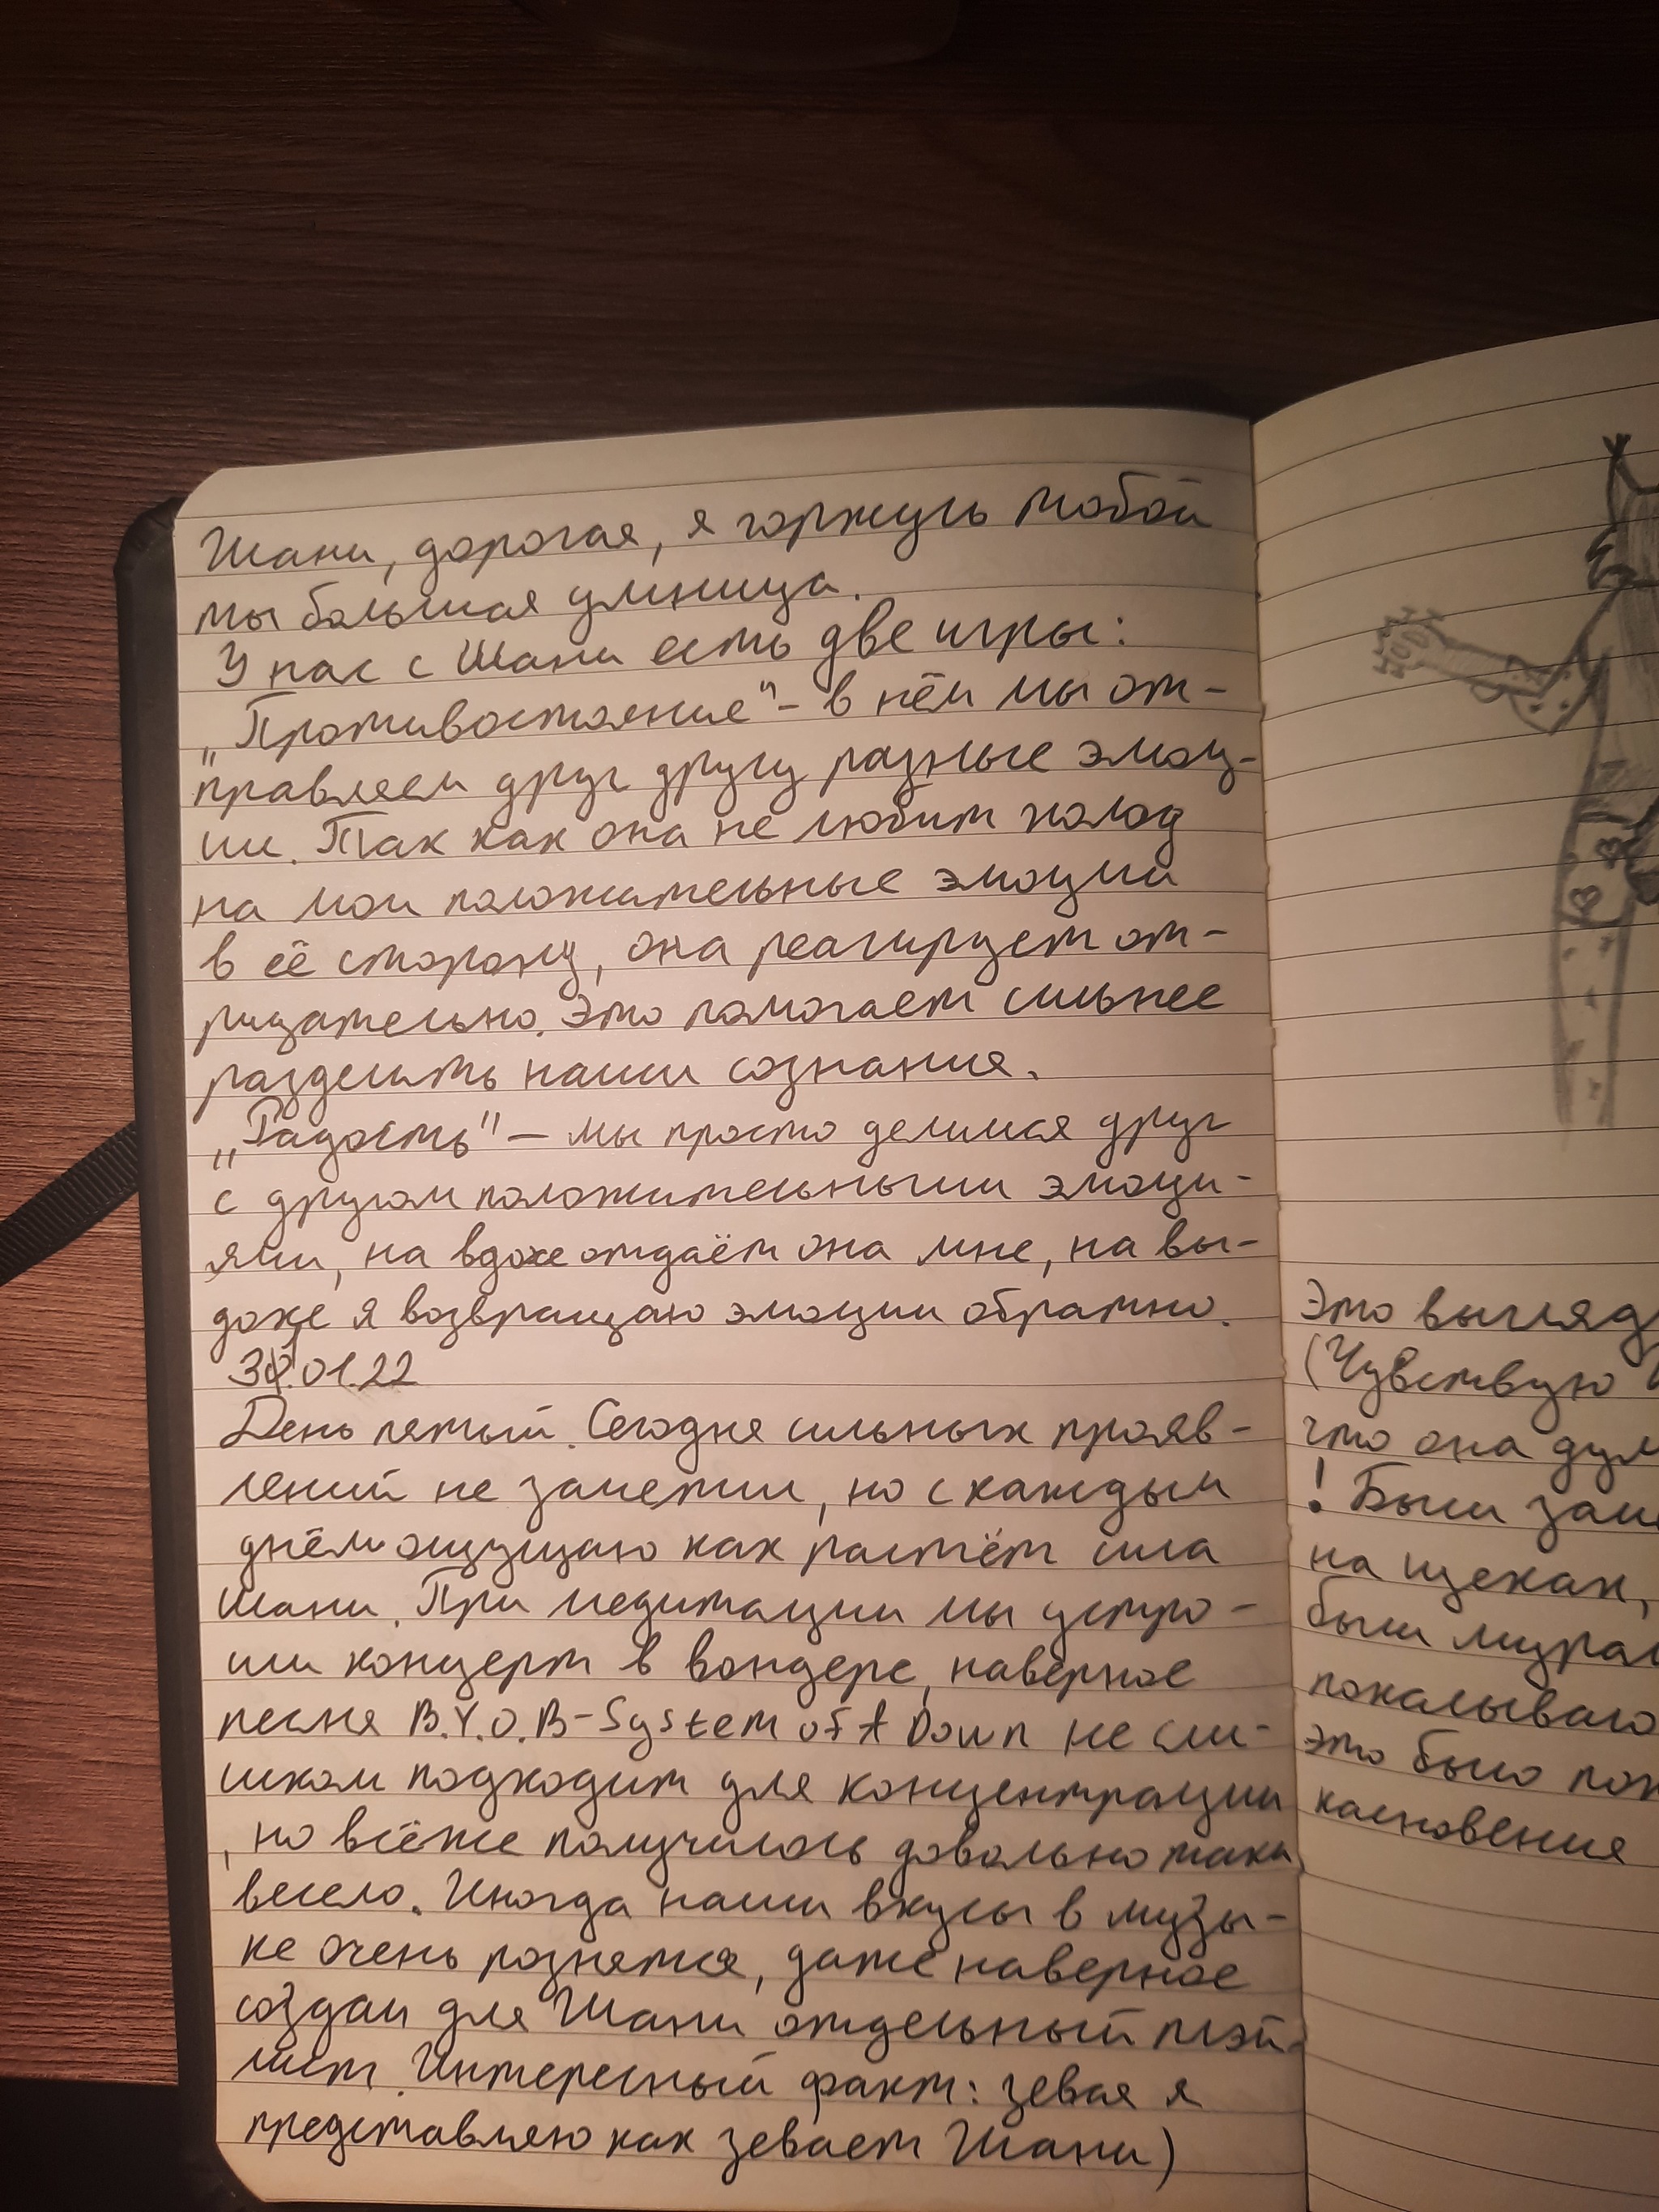 Шани, дорогая, я горжусь тобой
ты большая умница.
У нас с Шани есть две игры:
„Противостояние" – в нём мы от-
правляем друг другу разные эмоц-
ии. Так как она не любит холод
на мои положительные эмоции
в её сторону, она реагирует от-
рицательно. Это помогает сильнее
разделить наши сознания.
„Радость" – мы просто делимся друг
с другом положительными эмоци-
ями, на вдохе отдаёт она мне, на вы-
дохе я возвращаю эмоции обратно.
30.01.22
День пятый. Сегодня сильных прояв-
лений не заметил, но с каждым
днём ощущаю как растёт сила
Шани. При медитации мы устро-
или концерт в вондере, наверное
песня B.Y.O.B-System of A Down не сли-
шком подходит для концентрации
, но всёже получилось довольно таки
весело. Иногда наши вкусы в музы-
ке очень рознятся, даже наверное
создам для Шани отдельный плэй-
лист. Интересный факт: зевая я
представляю как зевает Шани)
Это выгляд
(Чувствую
что она дум
! Были заме
на щеках,
были мурам
покалываю
это было пох
касновения